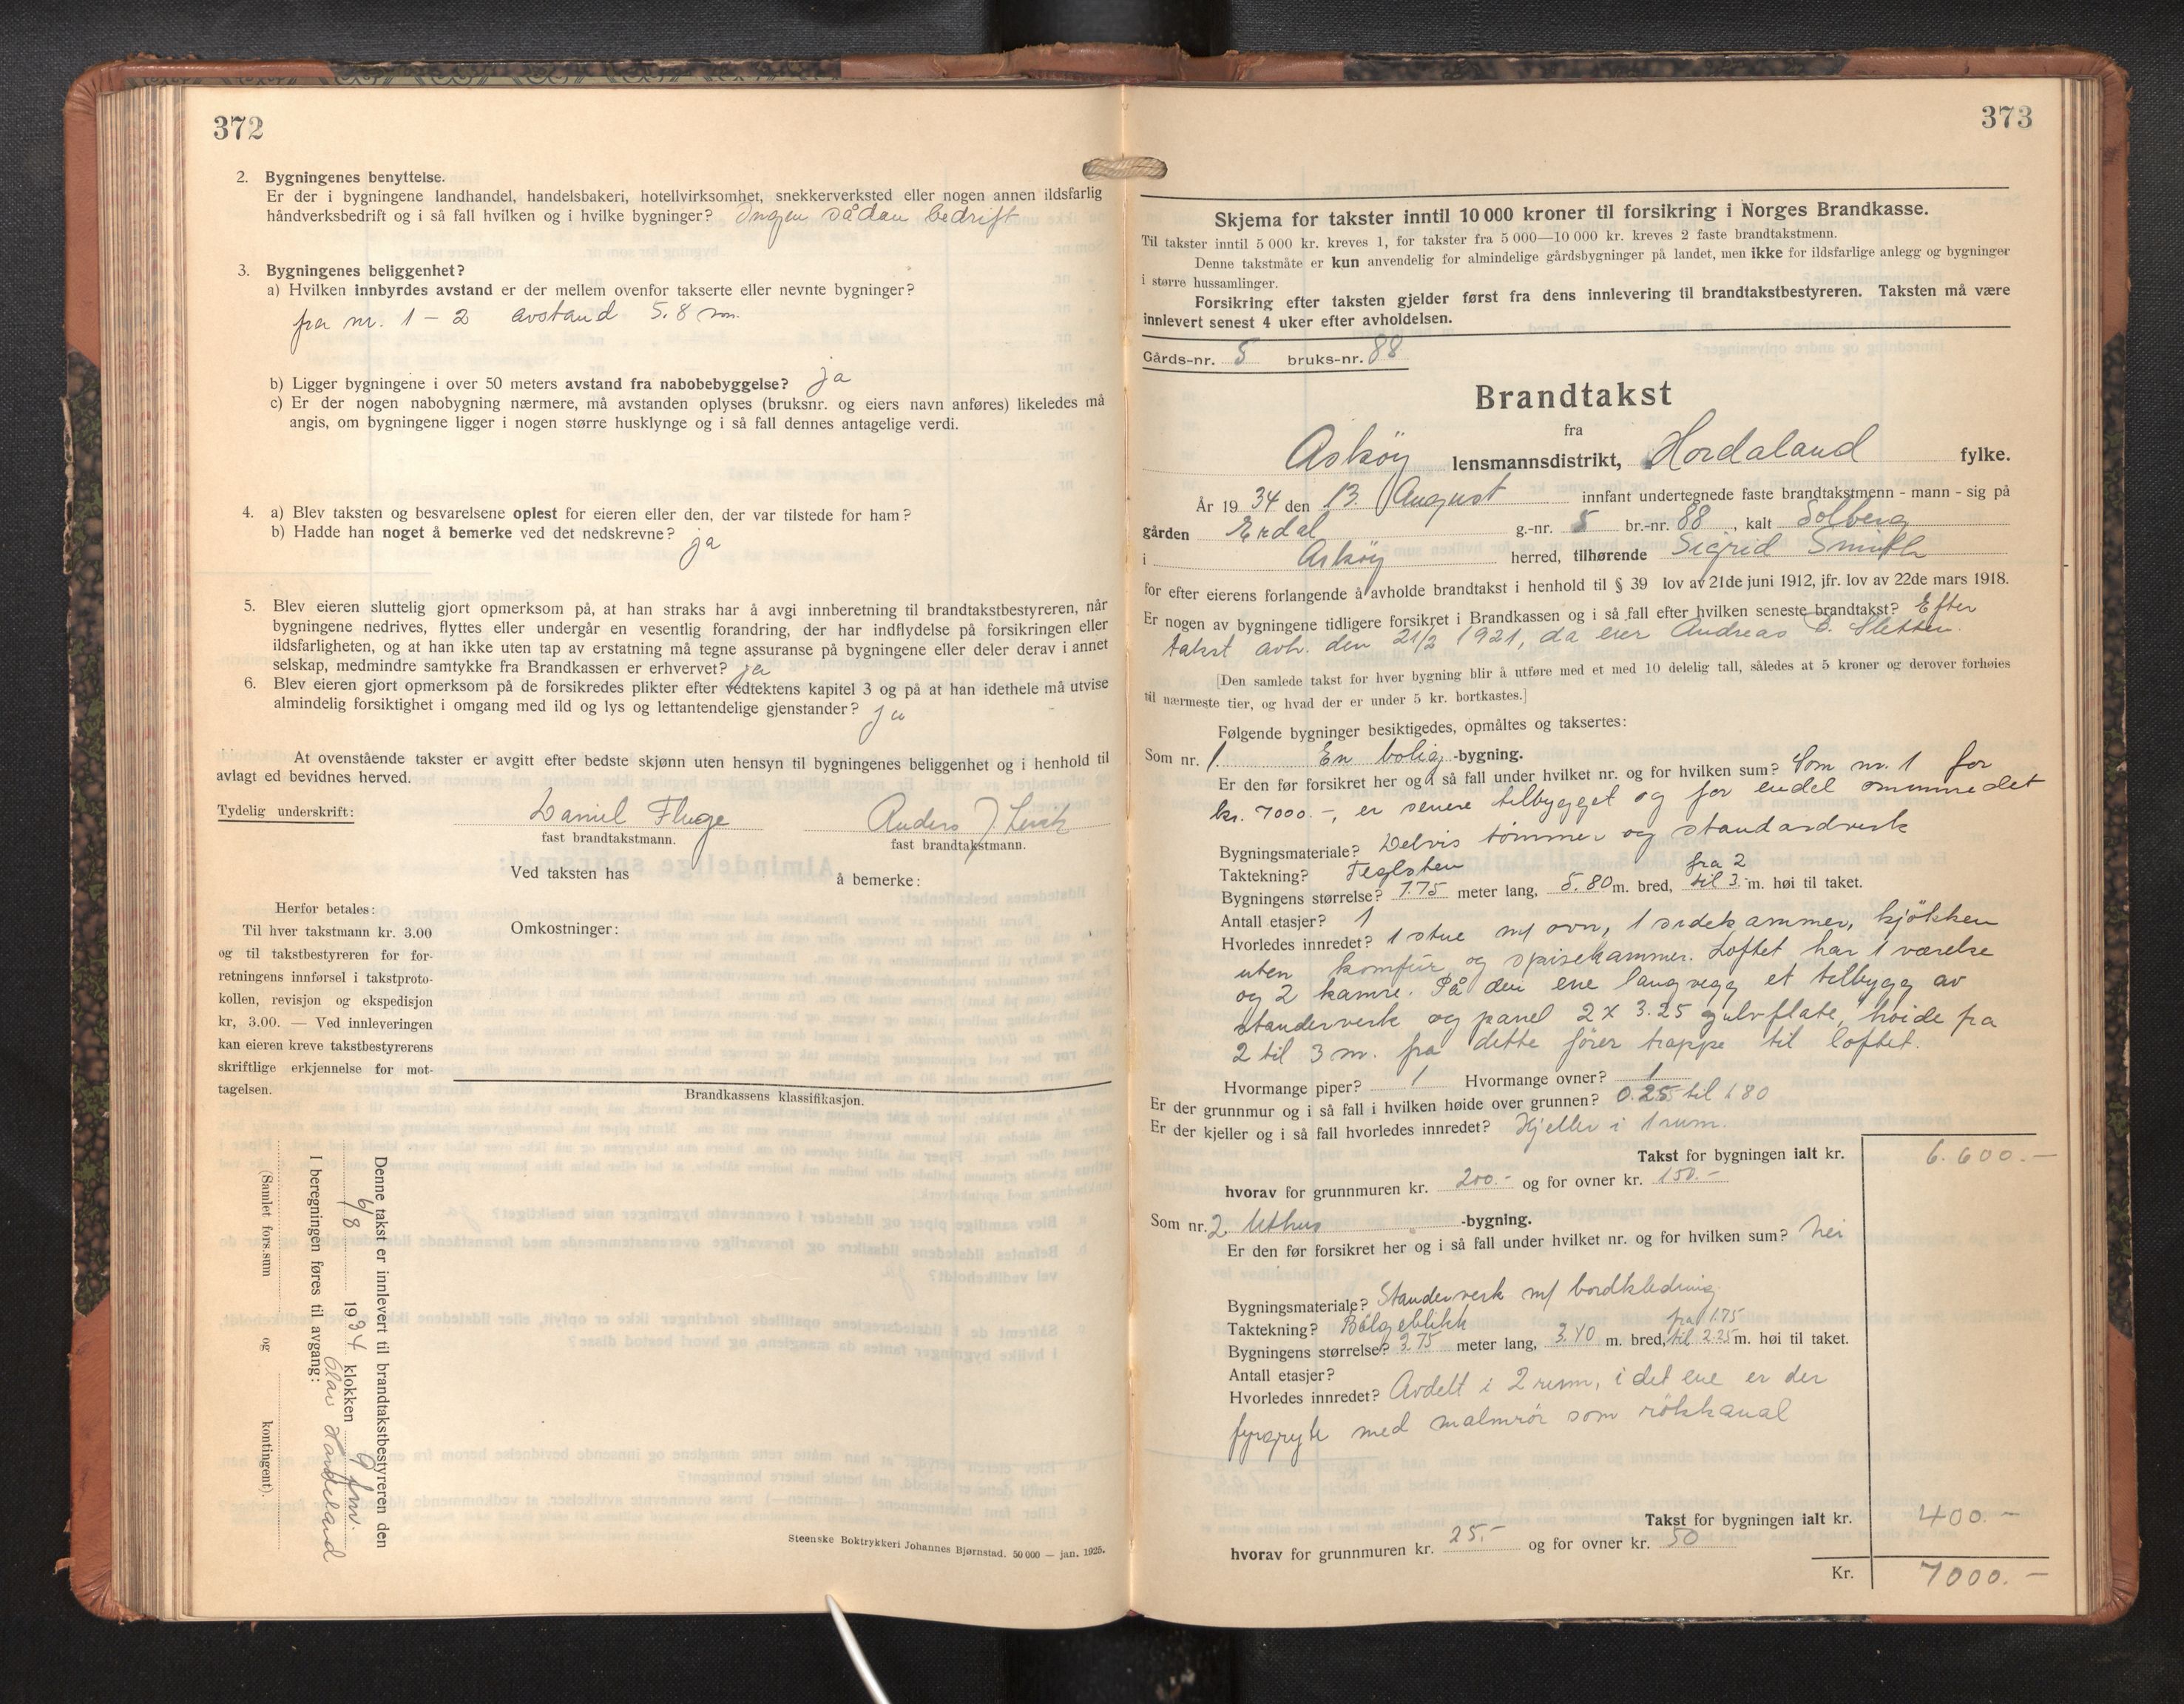 372
2. Bygningenes benyttelse.
Er der i bygningene landhandel, handelsbakeri, hotellvirksomhet, snekkerverksted eller nogen annen ildsfarlig
håndverksbedrift og i så fall hvilken og i hvilke bygninger? Ingen sådan bedrift
3. Bygningenes beliggenhet?
a) Hvilken innbyrdes avstand er der mellem ovenfor takserte eller nevnte bygninger?
fra nr. 1 – 2 avstand 5.8 m.
b) Ligger bygningene i over 50 meters avstand fra nabobebyggelse? ja
c) Er der nogen nabobygning nærmere, må avstanden oplyses (bruksnr. og eiers navn anføres) likeledes må
angis, om bygningene ligger i nogen større husklynge og i så fall dennes antagelige verdi.
4. a) Blev taksten og besvarelsene oplest for eieren eller den, der var tilstede for ham?
b) Hadde han noget å bemerke ved det nedskrevne? ja
5. Blev eieren sluttelig gjort opmerksom på, at han straks har å avgi innberetning til brandtakstbestyreren, når
bygningene nedrives, flyttes eller undergår en vesentlig forandring, der har indflydelse på forsikringen eller
ildsfarligheten, og at han ikke uten tap av erstatning må tegne assuranse på bygningene eller deler derav i annet
selskap, medmindre samtykke fra Brandkassen er erhvervet? ja
6. Blev eieren gjort opmerksom på de forsikredes plikter efter vedtektens kapitel 3 og på at han idethele må utvise
almindelig forsiktighet i omgang med ild og lys og lettantendelige gjenstander? ja
At ovenstående takster er avgitt efter bedste skjønn uten hensyn til bygningenes beliggenhet og i henhold til
avlagt ed bevidnes herved.
Tydelig underskrift: Daniel Fluge Anders J
fast brandtakstmann. fast brandtakstmann.
Ved taksten has å bemerke:
Herfor betales:
Til hver takstmann kr. 3.00
og til takstbestyreren for for-
retningens innførsel i takstproto-
kollen, revisjon og ekspedisjon
kr, 3.00. — Ved innleveringen
kan eieren kreve takstbestyrerens
skriftlige erkjennelse for mot-
tagelsen.
Omkostninger:
Brandkassens klassifikasjon.
Denne takst er innlevert til brandtakstbestyreren den
6/8 1934 klokken 9 fm.
Olav Handeland
I beregningen føres til avgang:
(Samlet fors.sum og kontingent).
Steenske Boktrykkeri Johannes Bjørnstad. 50 000 — jan. 1925.
373
Skjema for takster inntil 10 000 kroner til forsikring i Norges Brandkasse.
Til takster inntil 5 000 kr. kreves 1, for takster fra 5 000—10 000 kr. kreves 2 faste brandtakstmenn.
Denne takstmåte er kun anvendelig for almindelige gårdsbygninger på landet, men ikke for ildsfarlige anlegg og bygninger
i større hussamlinger.
Forsikring efter taksten gjelder først fra dens innlevering til brandtakstbestyreren. Taksten må være
innlevert senest 4 uker efter avholdelsen.
Gårds-nr. 5 bruks-nr. 88
Brandtakst
fra
Askøy lensmannsdistrikt, Hordaland fylke.
År 1934 den 13. August innfant undertegnede faste brandtakstmenn - mann - sig på
gården Erdal g.-nr. 5 br.-nr. 88, kalt Solberg
i Askøy herred, tilhørende Sigrid Smith
for efter eierens forlangende å avholde brandtakst i henhold til § 39 lov av 21de juni 1912, jfr. lov av 22de mars 1918.
Er nogen av bygningene tidligere forsikret i Brandkassen og i så fall efter hvilken seneste brandtakst? Efter
takst avh. den 21/2 1921, da eier Andreas B. Sletten.
[Den samlede takst for hver bygning blir å utføre med et med 10 delelig tall, således at 5 kroner og derover forhøies
til nærmeste tier, og hvad der er under 5 kr. bortkastes.]
Følgende bygninger besiktigedes, opmåltes og taksertes:
Som nr. 1 En bolig -bygning.
Er den før forsikret her og i så fall under hvilket nr. og for hvilken sum? Som nr. 1 for
kr. 7000.-, er senere tilbygget og for endel ominnredet
Bygningsmateriale? Delvis tømmer og standardverk
Taktekning? Teglsten
fra 2
Bygningens størrelse? 7.75 meter lang, 5.80 m. bred, til 3 m. høi til taket.
Antall etasjer? 1
Hvorledes innredet? 1 stue m/ ovn, 1 sidekammer, kjøkken
uten komfür og spisekammer. Loftet har 1 værelse
og 2 kamre. På den ene langvegg et tilbygg av
standerverk og panel 2 x 3.25 gulvflate, høide fra
2 til 3 m. fra dette fører trappe til loftet.
Hvormange piper? 1 Hvormange ovner? 1
Er der grunnmur og i så fall i hvilken høide over grunnen? 0.25 til 1.80
Er der kjeller og i så fall hvorledes innredet? Kjeller i 1 rum.
Takst for bygningen ialt kr. 6.600.—
hvorav for grunnmuren kr. 200.- og for ovner kr. 150.-
Som nr. 2 Uthus -bygning.
Er den før forsikret her og i så fall under hvilket nr. og for hvilken sum? nei
Bygningsmateriale? Standerverk m/ bordkledning.
Taktekning? Bølgeblikk
fra 1.75
Bygningens størrelse? 3.75 meter lang, 3.40 m. bred, til 2.25 m. høi til taket.
Antall etasjer?
Hvorledes innredet? Avdelt i 2 rum, i det ene er der
fyrgryte med malmrör som rökkanal
Takst for bygningen ialt kr. 400.—
hvorav for grunnmuren kr. 25.- og for ovner kr. 50
Kr. 7000.—